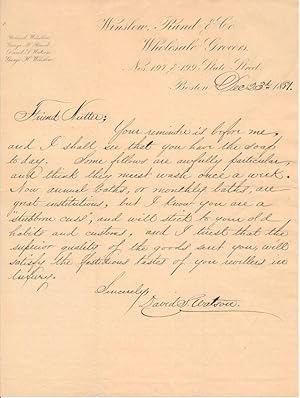 Winslow, Rand & Co.
Wholesale Grocers,
Nos. 197 & 199 State Street,
George H. Winslow
Boston Dec 23d 1881.
Friend Nutter;
Your reminder is before me,
and I shall see that you have the soap
to day. Some fellows are awfully particular,
and think they must wash once a week.
Now annual baths, or monthly baths, are
great institutions, but I know you are a
"stubborn cuss" and will stick to your old
habits and customs, and I trust that the
superior quality of the goods sent you, will
satisfy the fastidious tastes of you revellers in
luxury.
Sincerely,
David S. Watson.